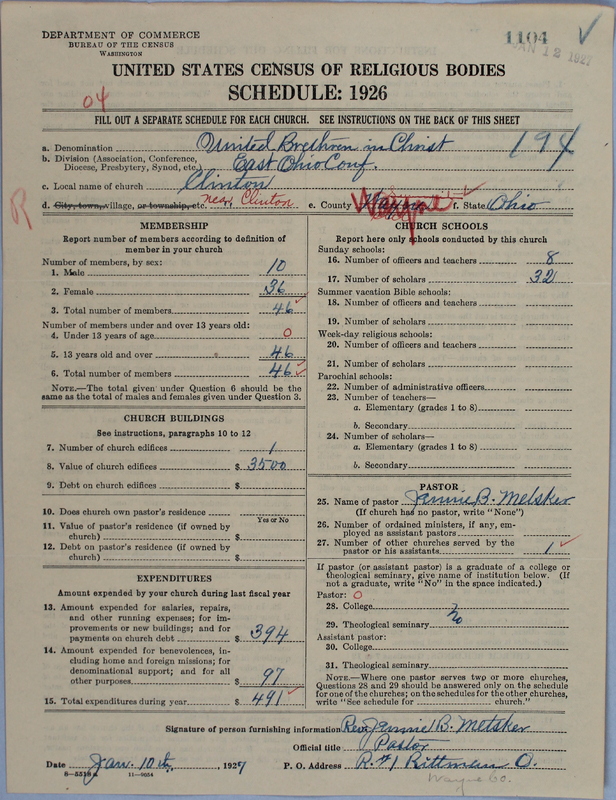 DEPARTMENT OF COMMERCE
BUREAU OF THE CENSUS
WASHINGTON
1104
JAN 12 1927
UNITED STATES CENSUS OF RELIGIOUS BODIES
SCHEDULE: 1926
04
FILL OUT A SEPARATE SCHEDULE FOR EACH CHURCH. SEE INSTRUCTIONS ON THE BACK OF THIS SHEET
a. Denomination United Brethren in Christ 194
b. Division (Association, Conference, Diocese, Presbytery, Synod, etc.) East Ohio Conf.
c. Local name of church Clinton
R
d. City, town, village, or township, etc. near Clinton e. County Wayne f. State Ohio
MEMBERSHIP
Report number of members according to definition of member in your church
Number of members, by sex:
1. Male 10
2. Female 36
3. Total number of members 46
Number of members under and over 13 years old:
4. Under 13 years of age 0
5. 13 years old and over 46
6. Total number of members 46
NOTE.—The total given under Question 6 should be the same as the total of males and females given under Question 3.
CHURCH BUILDINGS
See instructions, paragraphs 10 to 12
7. Number of church edifices 1
8. Value of church edifices $ 3500
9. Debt on church edifices $
10. Does church own pastor's residence
Yes or No
11. Value of pastor's residence (if owned by church) $
12. Debt on pastor's residence (if owned by church) $
EXPENDITURES
Amount expended by your church during last fiscal year
13. Amount expended for salaries, repairs, and other running expenses; for improvements or new buildings; and for payments on church debt $ 394
14. Amount expended for benevolences, including home and foreign missions; for denominational support; and for all other purposes $ 97
15. Total expenditures during year $ 491
CHURCH SCHOOLS
Report here only schools conducted by this church
Sunday schools:
16. Number of officers and teachers 8
17. Number of scholars 32
Summer vacation Bible schools:
18. Number of officers and teachers
19. Number of scholars
Week-day religious schools:
20. Number of officers and teachers
21. Number of scholars
Parochial schools:
22. Number of administrative officers
23. Number of teachers—
a. Elementary (grades 1 to 8)
b. Secondary
24. Number of scholars—
a. Elementary (grades 1 to 8)
b. Secondary
PASTOR
25. Name of pastor Jennie B. Metsker
(If church has no pastor, write "None")
26. Number of ordained ministers, if any, employed as assistant pastors
27. Number of other churches served by the pastor or his assistants 1
If pastor (or assistant pastor) is a graduate of a college or theological seminary, give name of institution below. (If not a graduate, write "No" in the space indicated.)
Pastor: 0
28. College
29. Theological seminary No
Assistant pastor:
30. College
31. Theological seminary
NOTE.—Where one pastor serves two or more churches, Questions 28 and 29 should be answered only on the schedule for one of the churches; on the schedules for the other churches, write "See schedule for church."
Signature of person furnishing information Rev. Jennie B. Metsker
Official title Pastor
Date Jan. 10th, 1927 P. O. Address R. #1 Rittman O.
8—5518a 11—9654
Wayne Co.